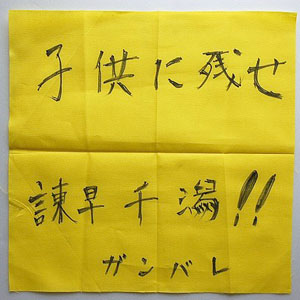 子供に残せ
諫早干潟!!
ガンバレ